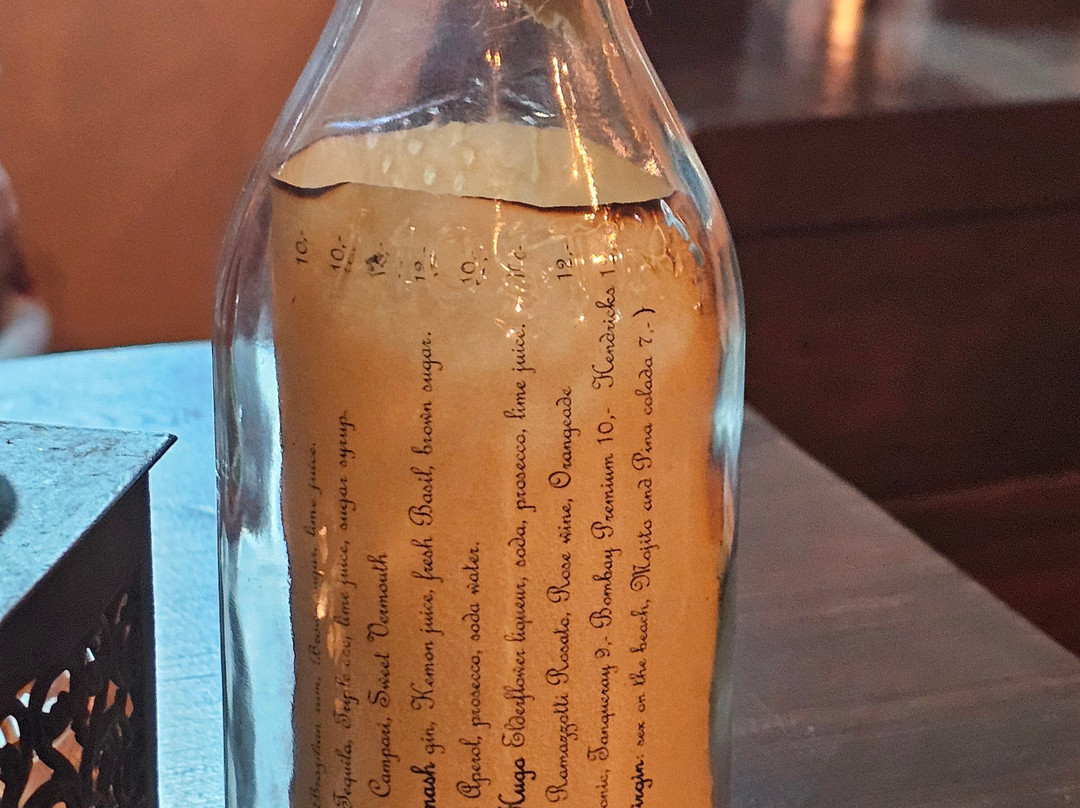 Brazilian rum, Brown sugar, lime juice. 10,-
Tequila, Triple sec, lime juice, sugar syrup. 10,-
Campari, Sweet Vermouth
mash gin, Kemon juice, fresh Basil, brown sugar. 12,-
Aperol, prosecco, soda water. 10,-
Hugo Elderflower liqueur, soda, prosecco, lime juice.
Ramazzotti Rosato, Rose wine, Orangeade 12,-
onic, Tanqueray 9,- Bombay Premium 10,- Hendricks
irgin: sex on the beach, Mojito and Pina colada 7,-)